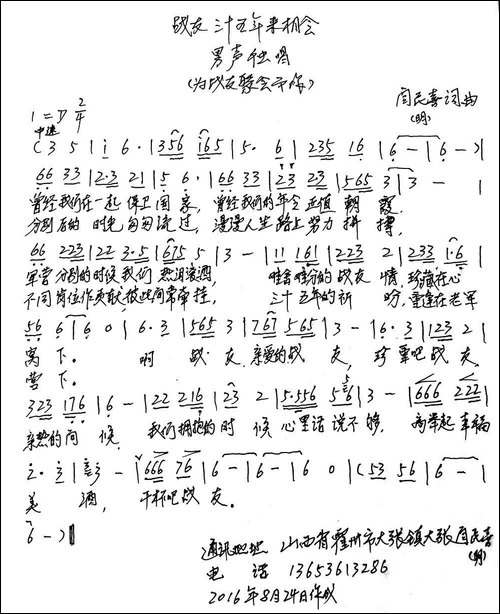 战友三十五年来相会
男声独唱
(为战友聚会而作)
1=D 2/4
中速
闫民喜词曲
(明)
(3 5 | i 6· | 356 i65 | 5· 6 | 235 16 | 6 — | 6 — ) |
66 33 | 2·3 21 | 5 6· | 66 33 | 23 23 | 565 3 | 3 — |
曾经我们在一起保卫国家, 曾经我们的年令正值朝霞,
分别后的时光匆匆流过, 漫漫人生路上努力拼搏,
66 223 | 22 3·5 | 675 5 | 3 — | 11 161 | 223 2 | 233 1·6 |
军营分别的时候我们热泪滚洒, 难舍难分的战友情, 珍藏在心
不同岗位作贡献,彼此间常牵挂, 三十五年的祈盼,重逢在老军
56 6 | 6 0 | 6·3 | 565 3 | 767 565 | 3 — | 6·3 | 123 2 |
窝下。 啊 战友,亲爱的战友, 珍重吧战友,
营下。
323 176 | 6 — | 22 216 | 23 2 | 5·556 5 6 | 3 — | 666 222 |
亲热的问候, 我们拥抱的时候心里话说不够, 高举起幸福
2·3 | 3 — | 666 76 | 6 — | 6 — | 6 0 | (53 56 | 6 — |
美酒, 干杯吧战友。
6 — ) ‖
通讯地址 山西省霍州市大张镇大张闫民喜
(明)
电话 13653613286
2016年8月24日作成